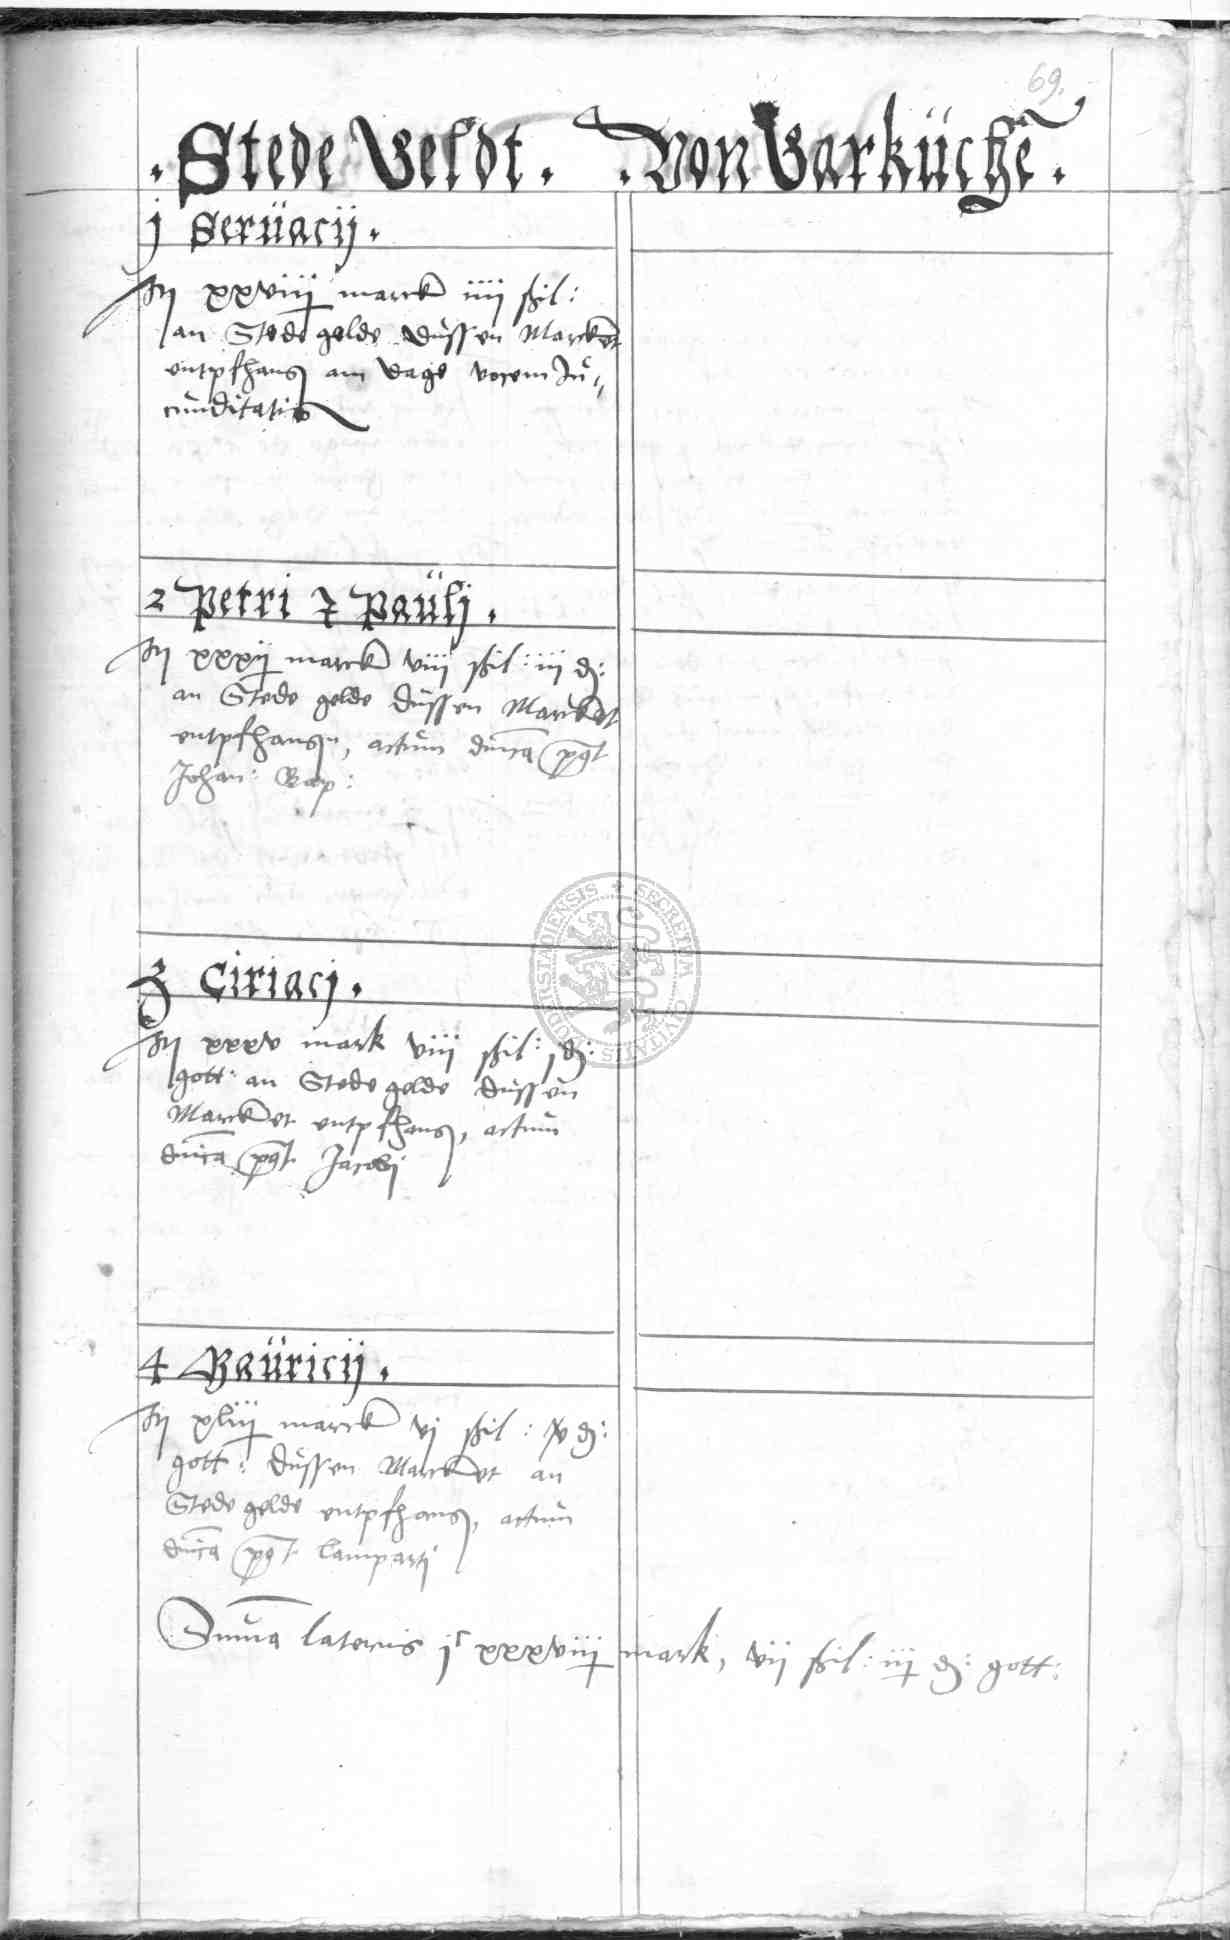 69.
. Stede Geldt . . Von Garküche .
j Seruacij .
It xxviiij marck iiij ßil :
an Stede gelde dussen Marcket
entpfhang am dage vocem Ju=
cunditatis
2 Petri & Pauli .
It xxxij marck viij ßil : iij d :
an Stede gelde dussen Marcket
entpfhang, actum dnica post
Johan : Bap :
3 Ciriacj .
It xxxv mark viij ßil : j d :
gott : an Stede gelde dussen
Marcket entpfhang, actum
dnica post Jacobi
4 Mauricij .
It xliij marck vj ßil : v d :
gott : dussen Marcket an
Stede gelde entpfhang, actum
dnica post lamparti
Suma lateris jc xxxviiij mark, vij ßil : iij d : gott :
SECRETUM CIVITATIS DUDERSTADIENSIS